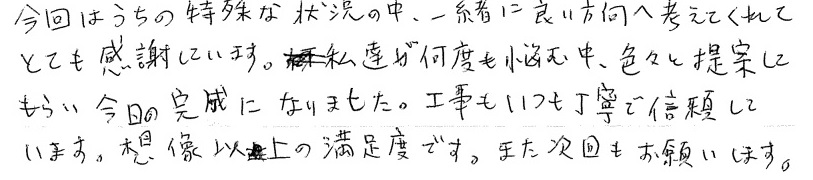 今回はうちの特殊な状況の中、一緒に良い方向へ考えてくれて
とても感謝しています。私達が何度も悩む中、色々と提案して
もらい今日の完成になりました。工事もいつも丁寧で信頼して
います。想像以上の満足度です。また次回もお願いします。